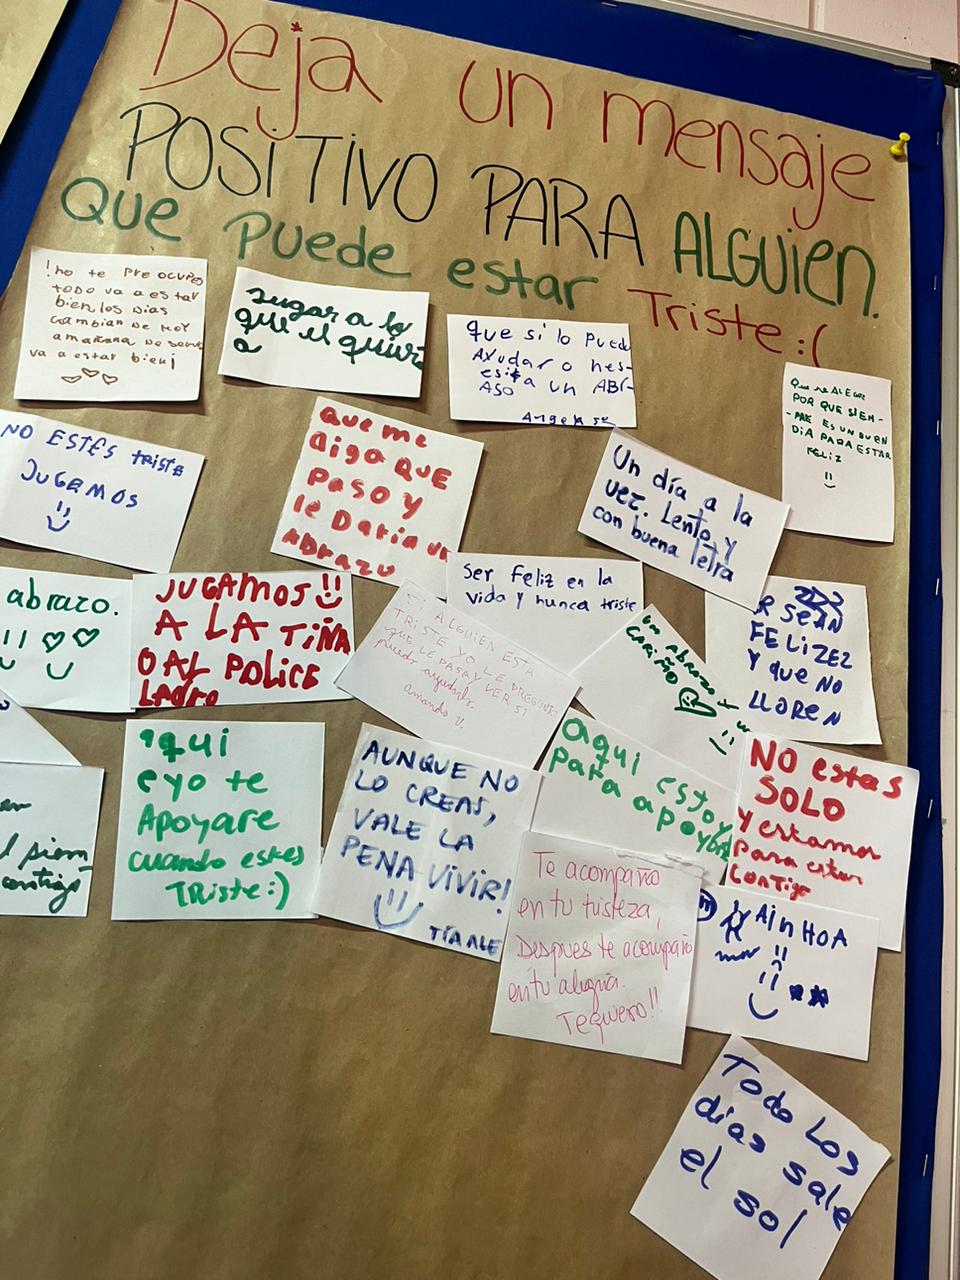 Deja un mensaje
POSITIVO PARA ALGUIEN.
QUE PUEDE estar Triste :(
! no te PREOCUPES
TODO va a estar
bien, los DIAS
cambian DE HOY
a mañana DE SEGURO
va a estar bien¡
Jugar a lo
que el quiera
que si lo puedo
AYUDAR o nes-
esita un ABR-
ASO
Que se ALEGRE
POR QUE SIEM-
-PRE ES UN BUEN
DIA PARA ESTAR
FELIZ
NO ESTES TRISTE
JUGAMOS
que me
diga QUE
Paso y
le Daria un
Abrazo
Un día a la
vez. Lento, y
con buena letra
abrazo.
JUGAMOS!!
A LA TIÑA
O AL POLICE
LADRO
Ser Feliz en la
vida y nunca triste
SI ALGUIEN ESTA
TRISTE YO LE PREGUNTO
que LE PASA Y VER SI
puedo ayudarle.
amando v.
un abrazo +
CARIÑO
R SEAN
FELIZEZ
Y que NO
LLOREN
aqui
eyo te
Apoyare
cuando estes
TRISTE :)
AUNQUE NO
LO CREAS,
VALE LA
PENA VIVIR!
TÍA ALE
aqui estoy
para apoyar
NO estas
SOLO
y estamos
para estar
CONTIGO
l siem-
contigo
Te acompaño
en tu tristeza,
Despues te acompaño
en tu alegria.
Te quiero!!
AINHOA
Todo Los
días sale
el sol